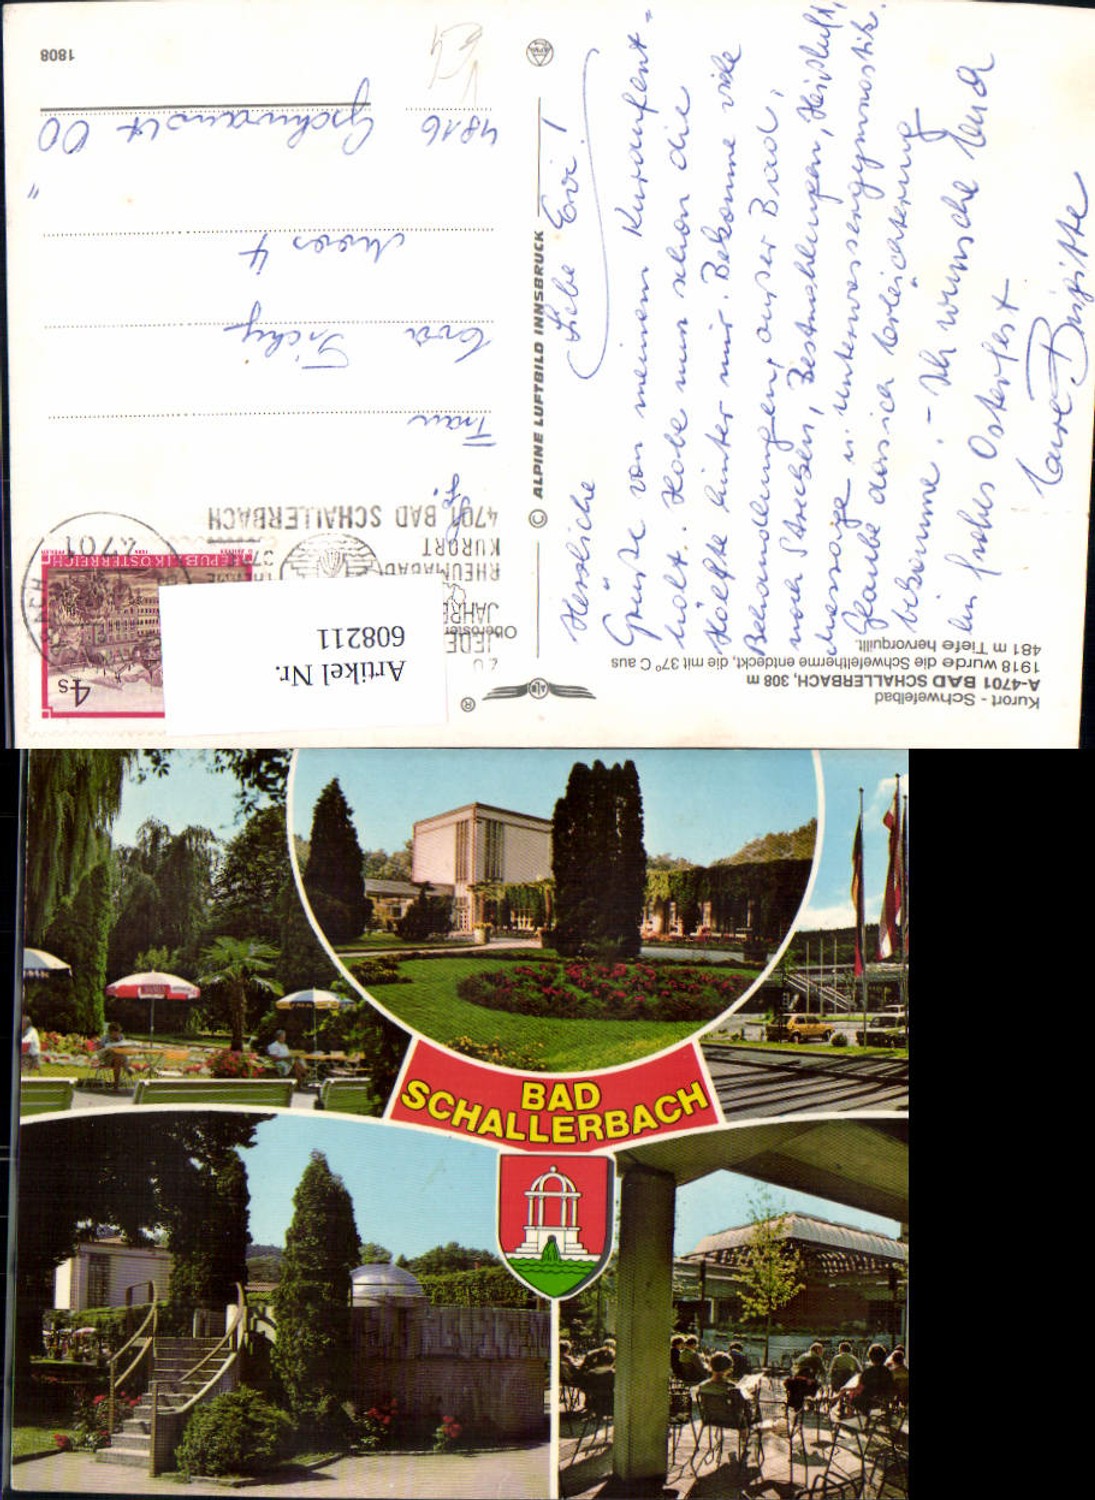 Kurort - Schwefelbad
A-4701 BAD SCHALLERBACH, 308 m
1918 wurde die Schwefeltherme entdeckt, die mit 37° C aus
481 m Tiefe hervorquillt.
Oberöster
®
ALPINE LUFTBILD INNSBRUCK
©
Liebe Evi!
Herzliche
Grüße von meinem Kuraufent-
halt. Habe nun schon die
Hälfte hinter mir. Bekomme viele
Behandlungen, außer Bad,
noch Bestrahlungen, Heißluft,
Massage u. Unterwassergymnastik.
Glaube dass ich Erleichterung
bekomme. - Ich wünsche Euch
ein frohes Osterfest
Eure Brigitte
Artikel Nr.
608211
4s
REPUBLIK ÖSTERREICH
4701
JEDE
JAHRE
RHEUMABAD
KURORT
4701 BAD SCHALLERBACH
Frau
Eva
Moos 4
4816 Gschwandt OÖ
1808
BAD
SCHALLERBACH